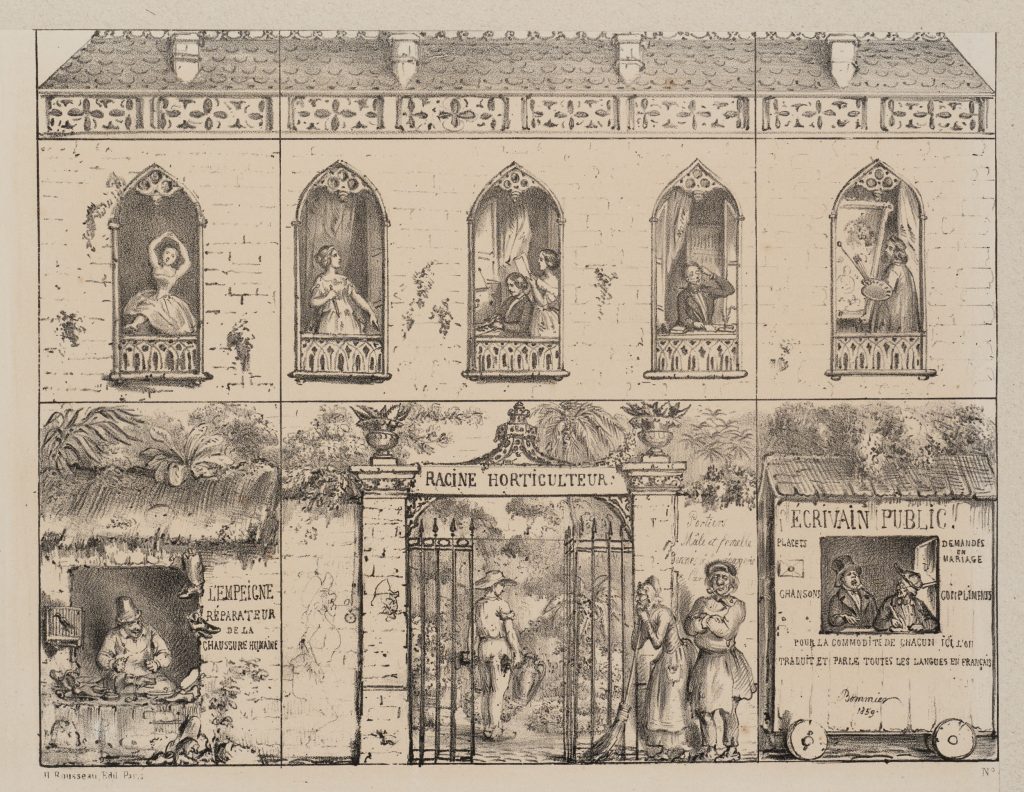 RACINE HORTICULTEUR.
L'EMPEIGNE
RÉPARATEUR
DE LA
CHAUSSURE HUMAINE
Portier
Male et femelle
ECRIVAIN PUBLIC!
PLACETS
CHANSONS
DEMANDES
EN
MARIAGE
COMPLIMENTS
POUR LA COMMODITÉ DE CHACUN ICI L'ON
TRADUIT ET PARLE TOUTES LES LANGUES EN FRANÇAIS
Bommier
1859.
M. Rousseau, Edit. Paris
N°